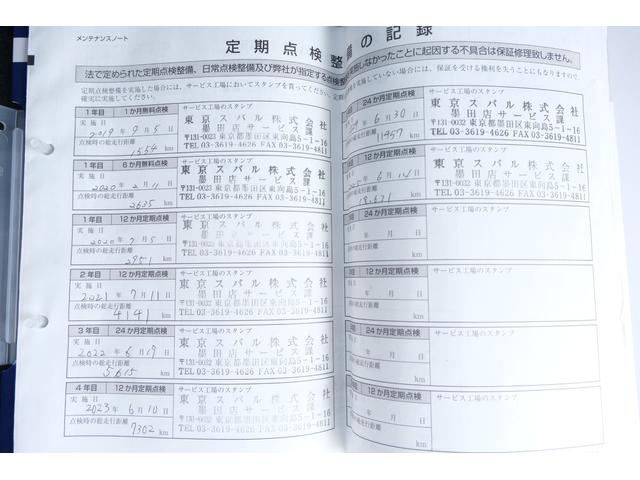 メンテナンスノート
定期点検整
法で定められた定期点検整備、日常点検整備及び弊社が指定する点検整
定期点検整備を実施した場合には、サービス工場においてスタンプを買ってください。
確実に実施してください。
1年目 1か月無料点検
サービス工場のスタンプ
実施日
2019年 9月 5日
点検時の総走行距離
1554 km
東京スバル株式会社
墨田店サービス課
〒131-0032 東京都墨田区東向島5-1-16
TEL 03-3619-4626 FAX 03-3619-4811
1年目 6か月無料点検
サービス工場のスタンプ
実施日
2020年 2月 11日
点検時の総走行距離
2635 km
東京スバル株式会社
墨田店サービス課
〒131-0032 東京都墨田区東向島5-1-16
TEL 03-3619-4626 FAX 03-3619-4811
1年目 12か月定期点検
サービス工場のスタンプ
実施日
2020年 7月 5日
点検時の総走行距離
2951 km
東京スバル株式会社
墨田店サービス課
〒131-0032 東京都墨田区東向島5-1-16
TEL 03-3619-4626 FAX 03-3619-4811
2年目 12か月定期点検
サービス工場のスタンプ
実施日
2021年 7月 11日
点検時の総走行距離
4141 km
東京スバル株式会社
墨田店サービス課
〒131-0032 東京都墨田区東向島5-1-16
TEL 03-3619-4626 FAX 03-3619-4811
3年目 24か月定期点検
サービス工場のスタンプ
実施日
2022年 6月 19日
点検時の総走行距離
5615 km
東京スバル株式会社
墨田店サービス課
〒131-0032 東京都墨田区東向島5-1-16
TEL 03-3619-4626 FAX 03-3619-4811
4年目 12か月定期点検
サービス工場のスタンプ
実施日
2023年 6月 10日
点検時の総走行距離
7302 km
東京スバル株式会社
墨田店サービス課
〒131-0032 東京都墨田区東向島5-1-16
TEL 03-3619-4626 FAX 03-3619-4811
備の記録
実施しなかったことに起因する不具合は保証修理致しません。
実施していない場合には、保証を受ける権利を失うことにもなりますので、
24か月定期点検
サービス工場のスタンプ
年 6月 30日
総走行距離
11457 km
東京スバル株式会社
墨田店サービス課
〒131-0032 東京都墨田区東向島5-1-16
TEL 03-3619-4626 FAX 03-3619-4811
12か月定期点検
サービス工場のスタンプ
年 6月 14日
総走行距離
km
東京スバル株式会社
墨田店サービス課
〒131-0032 東京都墨田区東向島5-1-16
TEL 03-3619-4626 FAX 03-3619-4811
24か月定期点検
サービス工場のスタンプ
年 月 日
総走行距離
km
12か月定期点検
サービス工場のスタンプ
年 月 日
総走行距離
km
24か月定期点検
サービス工場のスタンプ
年 月 日
総走行距離
km
12か月定期点検
サービス工場のスタンプ
年 月 日
総走行距離
km